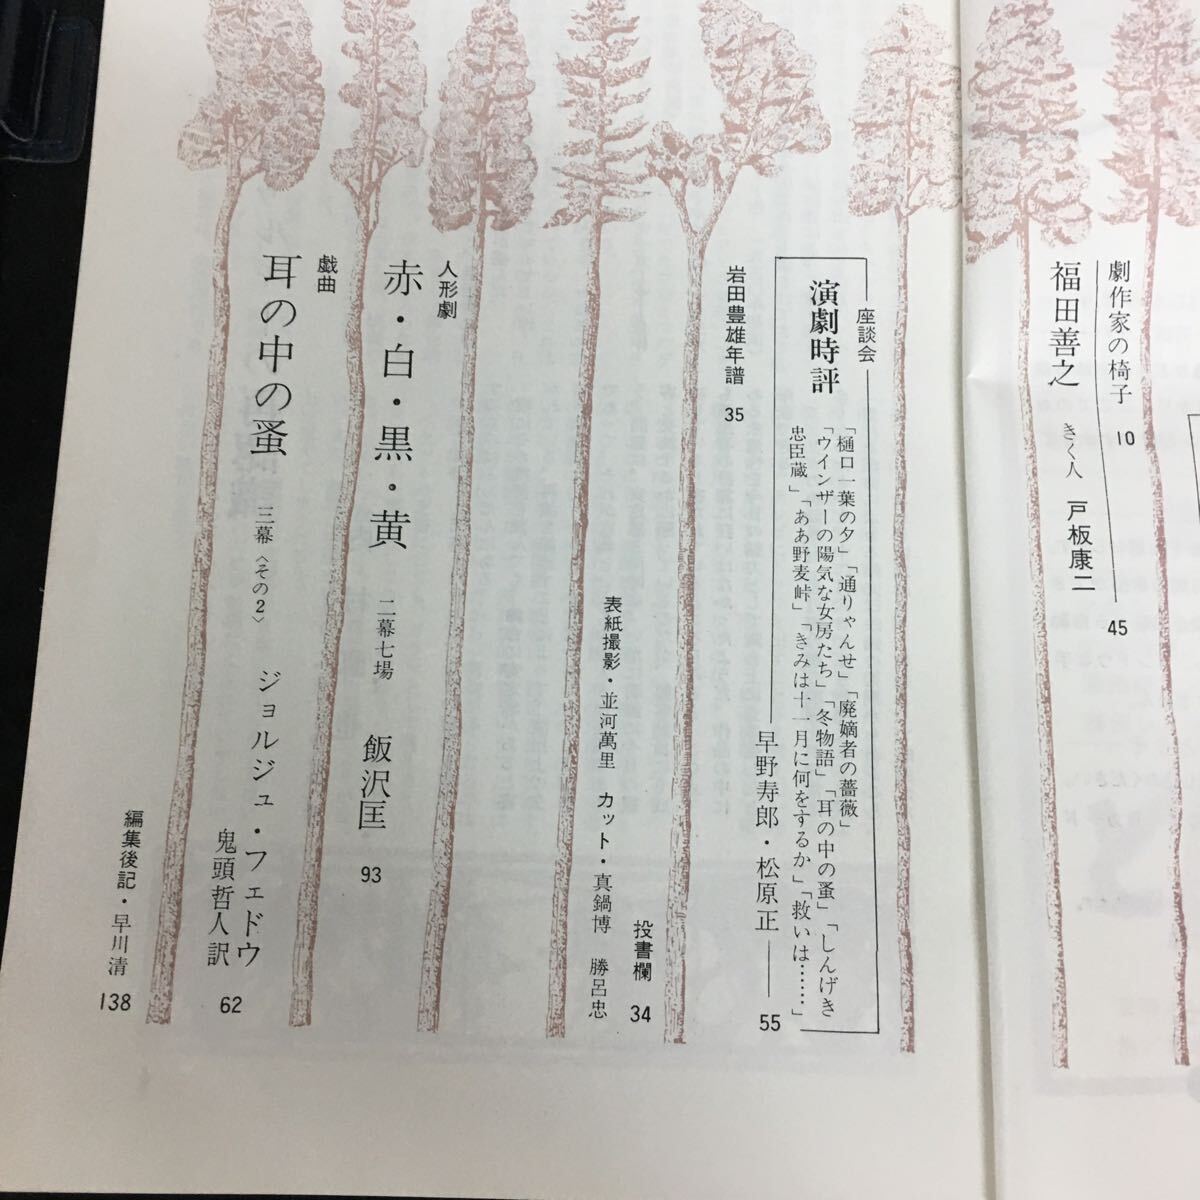 劇作家の椅子 10
福田善之 きく人 戸板康二 45
座談会
演劇時評
「樋口一葉の夕」「通りゃんせ」「廃嫡者の薔薇」
「ウインザーの陽気な女房たち」「冬物語」「耳の中の蚤」「しんげき
忠臣蔵」「ああ野麦峠」「きみは十一月に何をするか」「救いは……」
早野寿郎・松原正 55
岩田豊雄年譜 35
投書欄 34
表紙撮影・並河萬里 カット・真鍋博 勝呂忠
人形劇
赤・白・黒・黄 二幕七場 飯沢匡 93
戯曲
耳の中の蚤 三幕〈その2〉 ジョルジュ・フェドウ
鬼頭哲人訳 62
編集後記・早川清 138